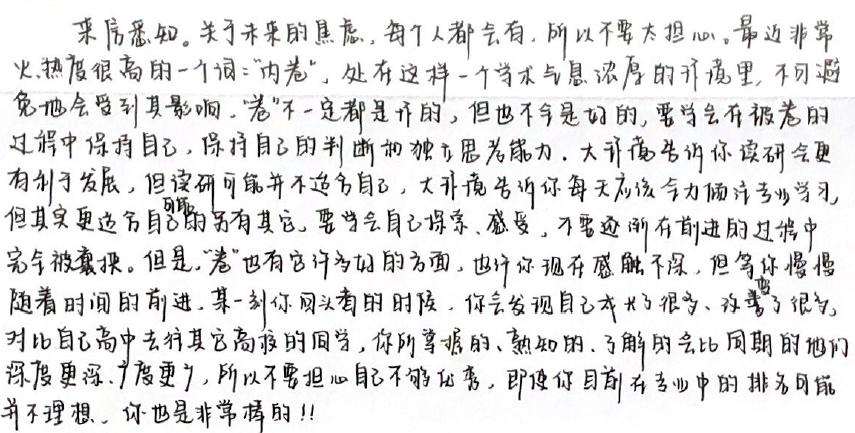 来信悉知。关于未来的焦虑，每个人都会有，所以不要太担心。最近非常
火、热度很高的一个词："内卷"，处在这样一个学术气息浓厚的环境里，不可避
免地会受到其影响，"卷"不一定都是坏的，但也不全是好的，要学会在被卷的
过程中保持自己，保持自己的判断和独立思考能力。大环境告诉你读研会更
有利于发展，但读研可能并不适合自己，大环境告诉你每天应该全力倾注专业学习，
但其实更适合自己的可能另有其它，要学会自己探索、感受，不要逐渐在前进的过程中
完全被裹挟。但是，"卷"也有它许多好的方面，也许你现在感触不深，但等你慢慢
随着时间的前进，某一刻你回头看的时候，你会发现自己成长了很多、改变了很多，
对比自己高中去往其它高校的同学，你所掌握的、熟知的、了解的会比同期的他们
深度更深、广度更广，所以不要担心自己不够优秀，即使你目前在专业中的排名可能
并不理想，你也是非常棒的!!